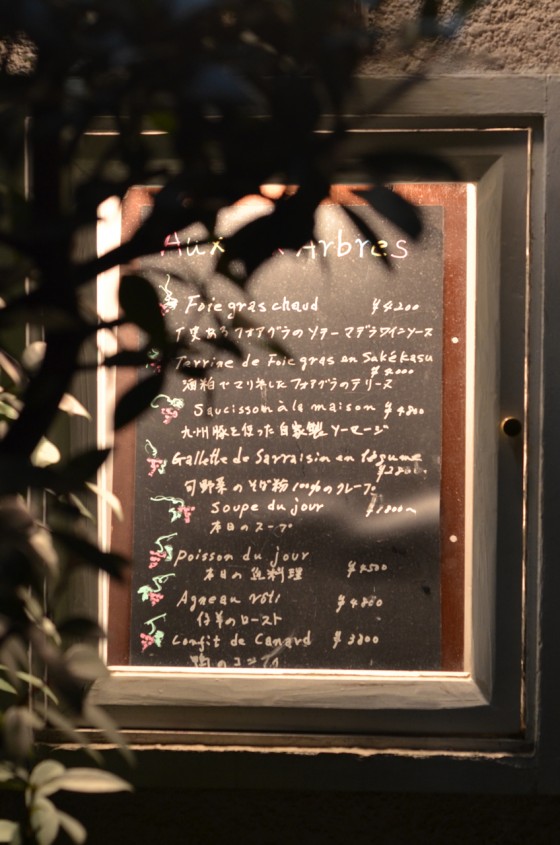 Aux Arbres
Foie gras chaud ¥4200
フォアグラのソテー マデラワインソース
Terrine de Foie gras en Sakékasu
酒粕でマリネしたフォアグラのテリーヌ
Saucisson à la maison ¥4800
九州豚を使った自家製ソーセージ
Gallette de Sarraisin en légume
野菜のそば粉100%のクレープ
Soupe du jour
本日のスープ
Poisson du jour
本日の魚料理
Agneau rôti
仔羊のロースト
Confit de Canard ¥3800
鴨のコンフィ